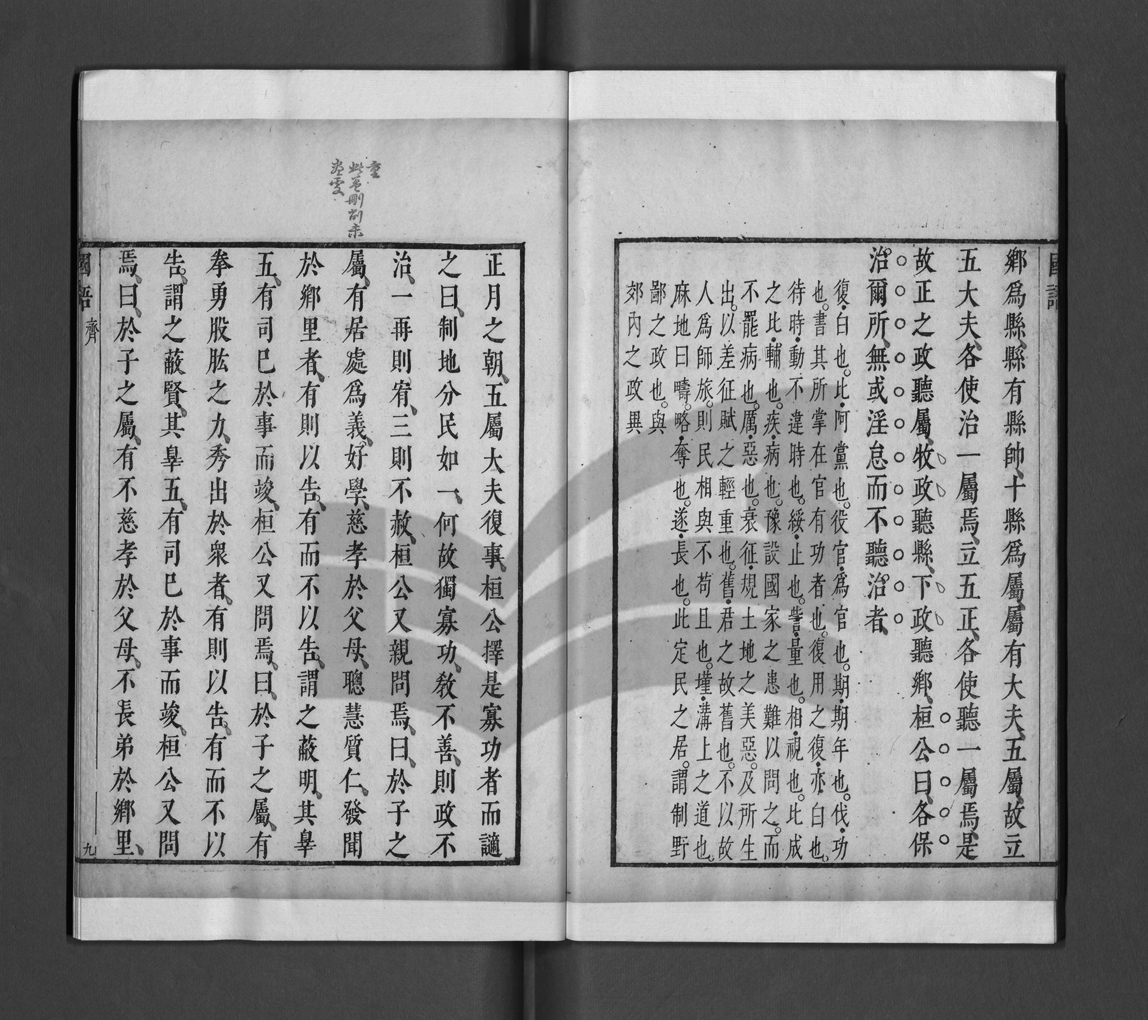 國語
鄉爲縣、縣有縣帥、十縣爲屬、屬有大夫、五屬、故立
五大夫、各使治一屬焉、立五正、各使聽一屬焉、是
故正之政聽屬、牧政聽縣、下政聽鄉、桓公曰、各保
治爾所、無或淫怠而不聽治者、
復、白也。比、阿黨也。役官、爲官也。期、期年也。伐、功
也。書其所掌在官有功者也。復用之、復、亦白也。
待時、動不違時也。綏、止也。訾、量也。相、視也。比、成
之比、輔也。疾、病也。豫設國家之患難以問之。而
不罷病也。厲、惡也。衰征、規土地之美惡。及所生
出。以差征賦之輕重也。舊、君之故舊也。不以故
人爲師旅。則民相與不苟且也。墐、溝上之道也。
麻地曰疇。略、奪也。遂、長也。此定民之居。謂制野
鄙之政也。與
郊內之政異
重
此益刪削未
盡雯
正月之朝、五屬大夫復事、桓公擇是寡功者而讁
之曰、制地分民如一、何故獨寡功、敎不善、則政不
治、一再則宥、三則不赦、桓公又親問焉、曰、於子之
屬、有居處爲義、好學、慈孝於父母、聰慧質仁、發聞
於鄉里者、有則以告、有而不以告、謂之蔽明、其辠
五、有司巳於事而竣、桓公又問焉、曰、於子之屬、有
拳勇股肱之力、秀出於衆者、有則以告、有而不以
告、謂之蔽賢、其辠五、有司巳於事而竣、桓公又問
焉、曰、於子之屬、有不慈孝於父母、不長弟於鄉里、
國語 齊 九